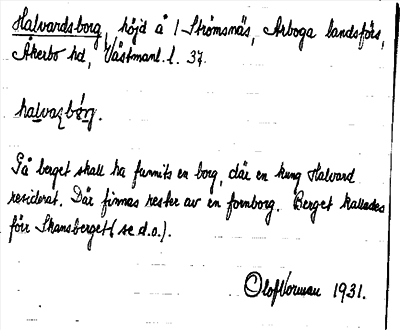 Halvardsborg, höjd å 1 Strömsnäs, Arboga landsförs,
Åkerbo hd, Västmanl. l. 37.
halvazbórj.
På berget skall ha funnits en borg, där en kung Halvard
residerat. Där finnas rester av en fornborg. Berget kallades
förr Skansberget (se d.o.).
Olof Vorman 1931.